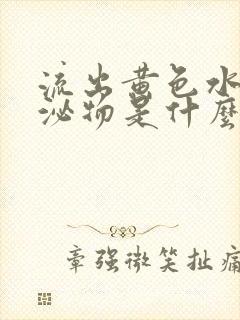 流出黄色水
泌物是什麼
章强微笑扯痛